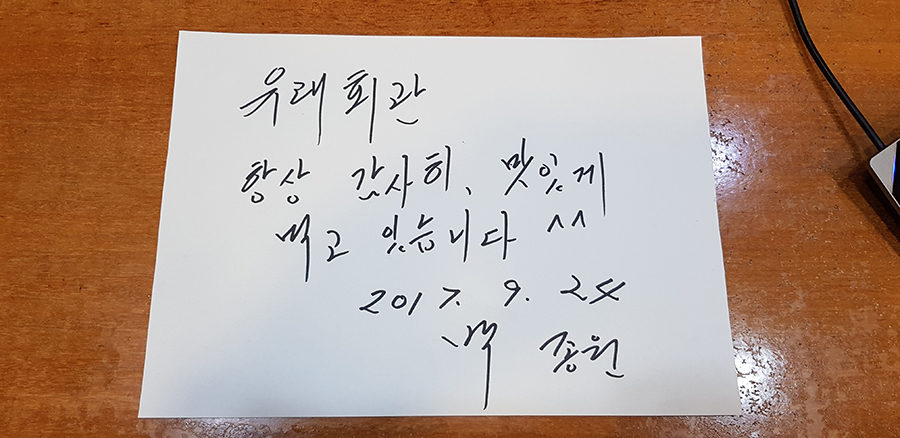 우래회관
항상 감사히, 맛있게
먹고 있습니다 ^^
2017. 9. 24
백 종원